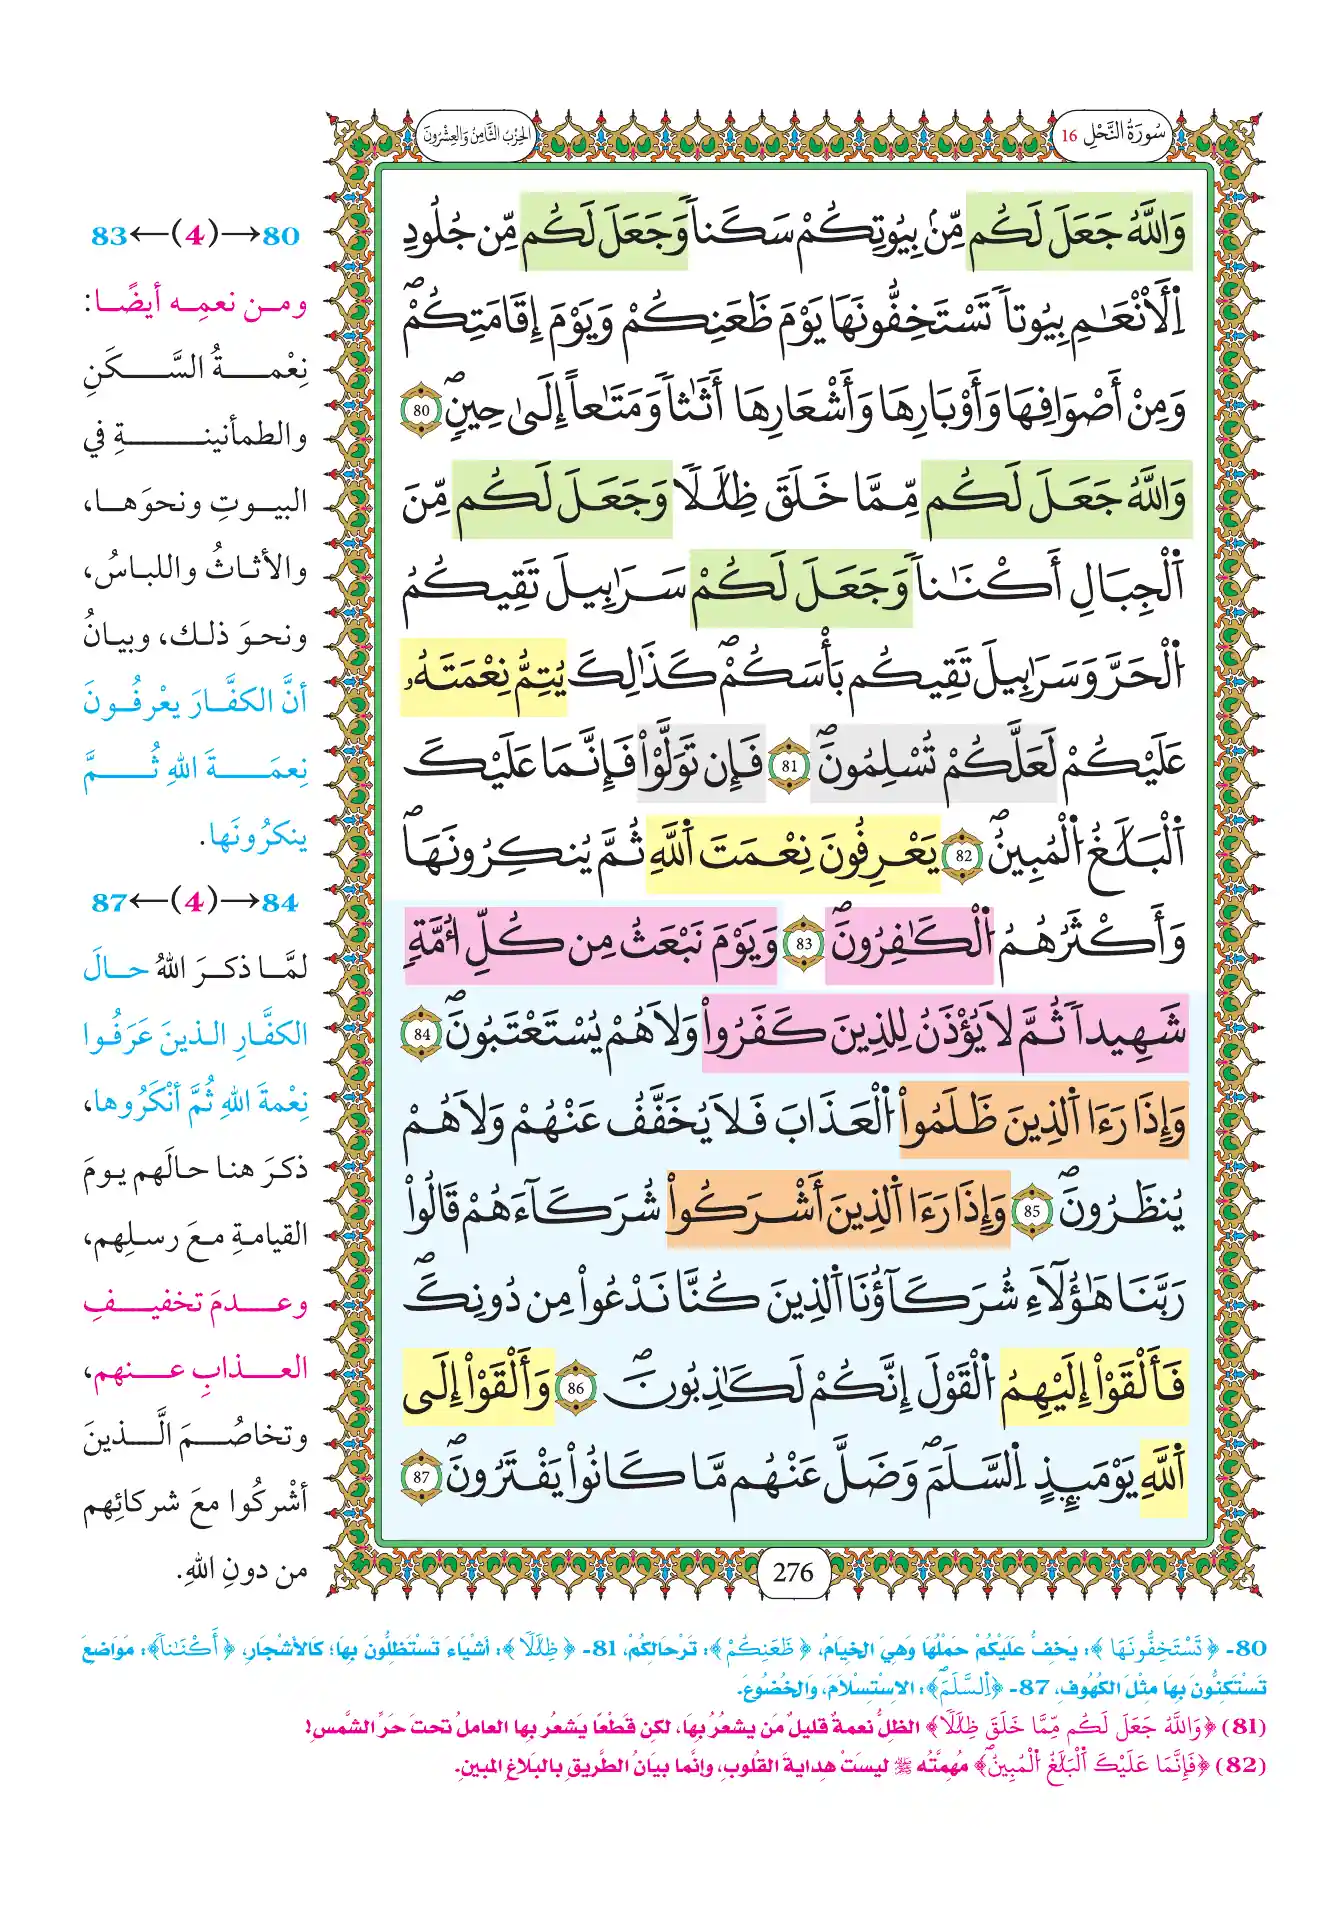 سُورَةُ النَّحْلِ 16
الحِزْبُ الثَّامِنُ وَالعِشْرُونَ
وَاللَّهُ جَعَلَ لَكُم مِّنۢ بِيُوتِكُمْ سَكَناٗ وَجَعَلَ لَكُم مِّن جُلُودِ
اِ۬لَانْعَٰمِ بِيُوتاٗ تَسْتَخِفُّونَهَا يَوْمَ ظَعَنِكُمْ وَيَوْمَ إِقَامَتِكُمْۖ
وَمِنْ أَصْوَافِهَا وَأَوْبَارِهَا وَأَشْعَارِهَا أَثَٰثاٗ وَمَتَٰعاً إِلَىٰ حِينٖۖ 80
وَاللَّهُ جَعَلَ لَكُم مِّمَّا خَلَقَ ظِلَٰلٗا وَجَعَلَ لَكُم مِّنَ
اَ۬لْجِبَالِ أَكْنَٰناٗ وَجَعَلَ لَكُمْ سَرَٰبِيلَ تَقِيكُمُ
اُ۬لْحَرَّ وَسَرَٰبِيلَ تَقِيكُم بَأْسَكُمْۖ كَذَٰلِكَ يُتِمُّ نِعْمَتَهُۥ
عَلَيْكُمْ لَعَلَّكُمْ تُسْلِمُونَۖ 81 فَإِن تَوَلَّوْاْ فَإِنَّمَا عَلَيْكَ
اَ۬لْبَلَٰغُ اُ۬لْمُبِينُۖ 82 يَعْرِفُونَ نِعْمَتَ اَ۬للَّهِ ثُمَّ يُنكِرُونَهَاۖ
وَأَكْثَرُهُمُ اُ۬لْكَٰفِرُونَۖ 83 وَيَوْمَ نَبْعَثُ مِن كُلِّ أُمَّةٖ
شَهِيداٗ ثُمَّ لَا يُؤْذَنُ لِلذِينَ كَفَرُواْ وَلَا هُمْ يُسْتَعْتَبُونَۖ 84
وَإِذَا رَءَا اَ۬لذِينَ ظَلَمُواْ اُ۬لْعَذَابَ فَلَا يُخَفَّفُ عَنْهُمْ وَلَا هُمْ
يُنظَرُونَۖ 85 وَإِذَا رَءَا اَ۬لذِينَ أَشْرَكُواْ شُرَكَآءَهُمْ قَالُواْ
رَبَّنَا هَٰؤُلَآءِ شُرَكَآؤُنَا اَ۬لذِينَ كُنَّا نَدْعُواْ مِن دُونِكَۖ
فَأَلْقَوْاْ إِلَيْهِمُ اُ۬لْقَوْلَ إِنَّكُمْ لَكَٰذِبُونَۖ 86 وَأَلْقَوْاْ إِلَى
اَ۬للَّهِ يَوْمَئِذٍ اِ۬لسَّلَمَۖ وَضَلَّ عَنْهُم مَّا كَانُواْ يَفْتَرُونَۖ 87
276
80→(4)←83
ومن نعمِه أيضًا:
نِعْمةُ السَّكَنِ
والطمأنينةِ في
البيوتِ ونحوَها،
والأثاثُ واللباسُ،
ونحوَ ذلك، وبيانُ
أنَّ الكفَّارَ يعْرفُونَ
نِعمَةَ اللهِ ثُمَّ
ينكرُونَها.
84→(4)←87
لمَّا ذكرَ اللهُ حالَ
الكفَّارِ الذينَ عَرَفُوا
نِعْمةَ اللهِ ثُمَّ أنْكَرُوها،
ذكرَ هنا حالَهم يومَ
القيامةِ معَ رسلِهم،
وعدمَ تخفيفِ
العذابِ عنهم،
وتخاصُمَ الَّذينَ
أشْركُوا معَ شركائِهم
من دونِ اللهِ.
80- ﴿تَسْتَخِفُّونَهَا﴾: يَخِفُّ عَلَيْكُمْ حَمْلُهَا وَهِيَ الخِيَامُ، ﴿ظَعَنِكُمْ﴾: تَرْحَالِكُمْ، 81- ﴿ظِلَٰلٗا﴾: أَشْيَاءَ تَسْتَظِلُّونَ بِهَا؛ كَالأَشْجَارِ، ﴿أَكْنَٰناٗ﴾: مَوَاضِعَ
تَسْتَكِنُّونَ بِهَا مِثْلَ الكُهُوفِ، 87- ﴿اِ۬لسَّلَمَۖ﴾: الاِسْتِسْلَامَ، وَالخُضُوعَ.
(81) ﴿وَاللَّهُ جَعَلَ لَكُم مِّمَّا خَلَقَ ظِلَٰلٗا﴾ الظلُّ نعمةٌ قليلٌ مَن يشعُرُ بِهَا، لكن قَطْعًا يَشعُر بِها العاملُ تحتَ حَرِّ الشَّمس!
(82) ﴿فَإِنَّمَا عَلَيْكَ اَ۬لْبَلَٰغُ اُ۬لْمُبِينُۖ﴾ مُهِمَّتُه ﷺ ليسَتْ هِدايةَ القلُوبِ، وإنَّما بيَانُ الطَّريقِ بالبَلاغِ المبينِ.